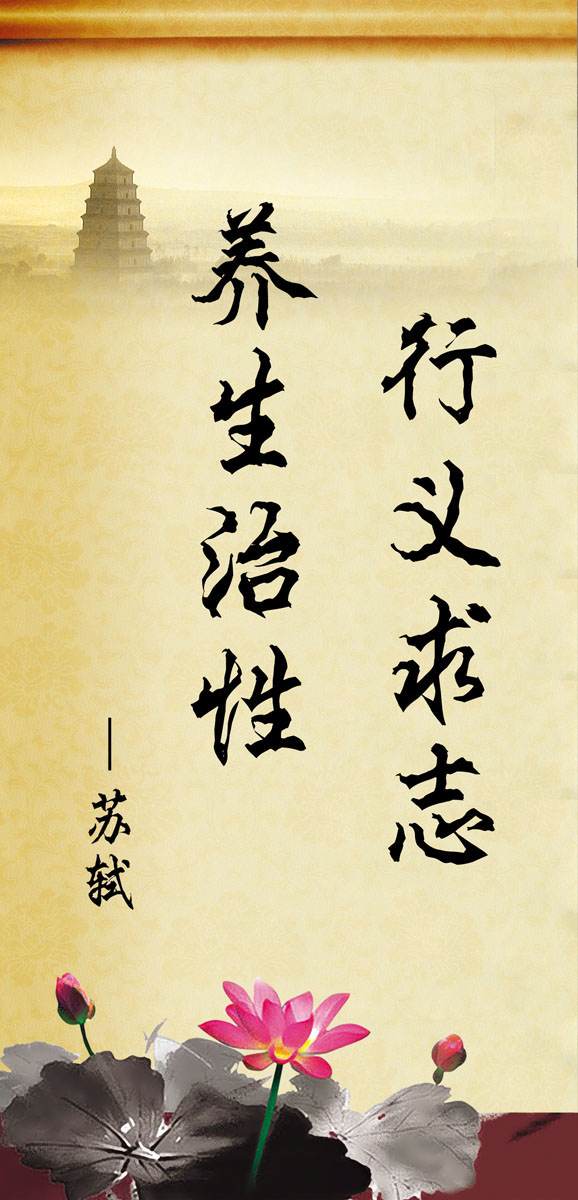 行义求志
养生治性
—苏轼